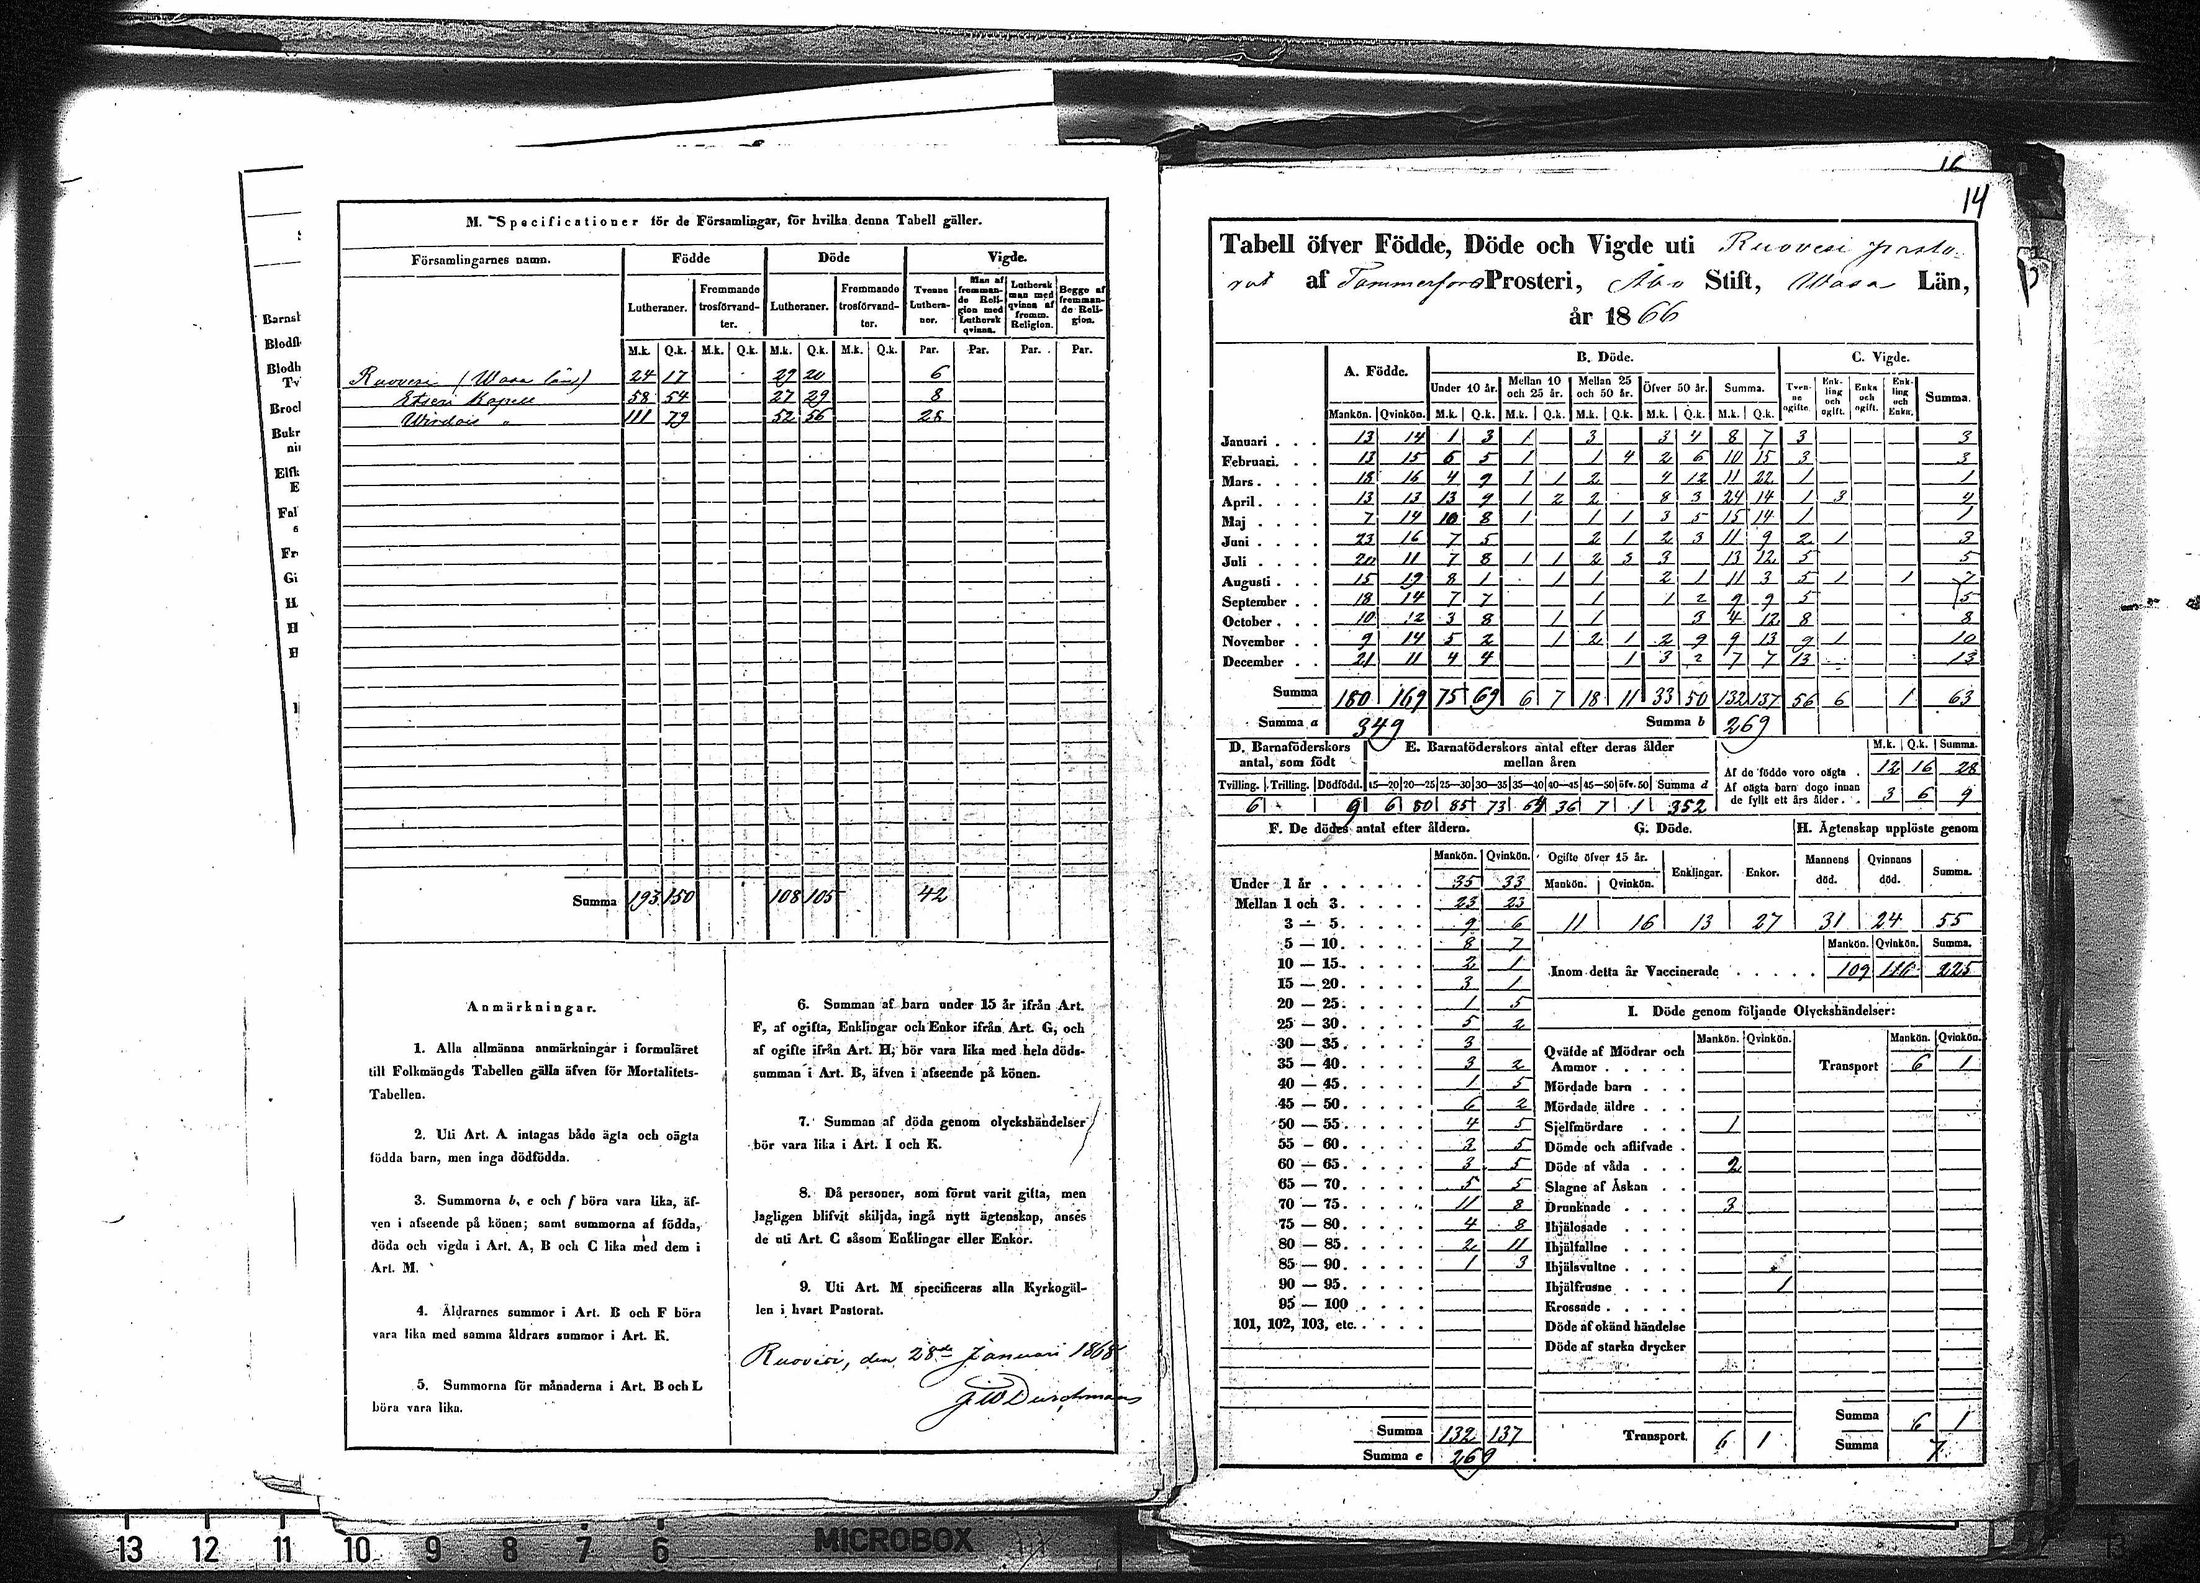 M. Specificationer för de Församlingar, för hvilka denna Tabell gäller.
Församlingarnes namn. | Födde | Döde | Vigde.
Lutheraner. | Fremmande trosförvandter. | Lutheraner. | Fremmande trosförvandter. | Tvenne Lutheraner. | Man af fremmande Religion med Luthersk qvinna. | Luthersk man med qvinna af fremm. Religion. | Begge af fremmande Religion.
M.k. | Q.k. | M.k. | Q.k. | M.k. | Q.k. | M.k. | Q.k. | Par. | Par. | Par. | Par.
Ruovesi (Wasa län) 24 17 29 20 6
Etseri Kapell 58 54 27 29 8
Wirdois " 111 79 52 56 28
Summa 193 150 108 105 42
Anmärkningar.
1. Alla allmänna anmärkningar i formuläret
till Folkmängds Tabellen gälla äfven för Mortalitets-
Tabellen.
2. Uti Art. A intagas både ägta och oägta
födda barn, men inga dödfödda.
3. Summorna b, e och f böra vara lika, äf-
ven i afseende på könen; samt summorna af födda,
döda och vigda i Art. A, B och C lika med dem i
Art. M.
4. Åldrarnes summor i Art. B och F böra
vara lika med samma åldrars summor i Art. K.
5. Summorna för månaderna i Art. B och L
böra vara lika.
6. Summan af barn under 15 år ifrån Art.
F, af ogifta, Enklingar och Enkor ifrån Art. G, och
af ogifte ifrån Art. H, bör vara lika med hela döds-
summan i Art. B, äfven i afseende på könen.
7. Summan af döda genom olyckshändelser
bör vara lika i Art. I och K.
8. Då personer, som förut varit gifta, men
lagligen blifvit skiljda, ingå nytt ägtenskap, anses
de uti Art. C såsom Enklingar eller Enkor.
9. Uti Art. M specificeras alla Kyrkogäl-
len i hvart Pastorat.
Ruovesi, den 28de Januari 1868
16
14
Tabell öfver Födde, Döde och Vigde uti Ruovesi pasto-
rat af Tammerfors Prosteri, Åbo Stift, Wasa Län,
år 1866
A. Födde. | B. Döde. | C. Vigde.
Under 10 år. | Mellan 10 och 25 år. | Mellan 25 och 50 år. | Öfver 50 år. | Summa. | Tvenne ogifte. | Enkling och ogift. | Enka och ogift. | Enkling och Enka. | Summa.
Mankön. | Qvinkön. | M.k. | Q.k. | M.k. | Q.k. | M.k. | Q.k. | M.k. | Q.k. | M.k. | Q.k.
Januari 13 14 1 3 1 3 3 4 8 7 3 3
Februari 13 15 6 5 1 1 4 2 6 10 15 3 3
Mars 18 16 4 9 1 1 2 4 12 11 22 1 1
April 13 13 13 9 1 2 2 8 3 24 14 1 3 4
Maj 7 14 10 8 1 1 1 3 5 15 14 1 1
Juni 23 16 7 5 2 1 2 3 11 9 2 1 3
Juli 20 11 7 8 1 1 2 3 3 13 12 5 5
Augusti 15 19 8 1 1 1 2 1 11 3 5 1 1 7
September 18 14 7 7 1 1 2 9 9 5 5
October 10 12 3 8 1 1 3 4 12 8 8
November 9 14 5 2 1 2 1 2 9 9 13 9 1 10
December 21 11 4 4 1 3 2 7 7 13 13
Summa 180 169 75 69 6 7 18 11 33 50 132 137 56 6 1 63
Summa a 349 Summa b 269
D. Barnaföderskors antal, som födt | E. Barnaföderskors antal efter deras ålder mellan åren | M.k. | Q.k. | Summa.
Tvilling. | Trilling. | Dödfödd. | 15—20 | 20—25 | 25—30 | 30—35 | 35—40 | 40—45 | 45—50 | öfv. 50 | Summa d
6 9 6 80 85 73 64 36 7 1 352
Af de födde voro oägta . 12 16 28
Af oägta barn dogo innan de fyllt ett års ålder . . 3 6 9
F. De dödes antal efter åldern.
Mankön. | Qvinkön.
Under 1 år 35 33
Mellan 1 och 3. 23 23
3 — 5. 9 6
5 — 10. 8 7
10 — 15. 2 1
15 — 20. 3 1
20 — 25. 1 5
25 — 30. 5 2
30 — 35. 3
35 — 40. 3 2
40 — 45. 1 5
45 — 50. 6 2
50 — 55. 4 5
55 — 60. 3 5
60 — 65. 3 5
65 — 70. 5 5
70 — 75. 11 8
75 — 80. 4 8
80 — 85. 2 11
85 — 90. 1 3
90 — 95.
95 — 100
101, 102, 103, etc.
Summa 132 137
Summa e 269
G. Döde. | H. Ägtenskap upplöste genom
Ogifte öfver 15 år. | Enklingar. | Enkor. | Mannens död. | Qvinnans död. | Summa.
Mankön. | Qvinkön.
11 16 13 27 31 24 55
Mankön. | Qvinkön. | Summa.
Inom detta år Vaccinerade 109 116 225
I. Döde genom följande Olyckshändelser:
Mankön. | Qvinkön. | Mankön. | Qvinkön.
Qväfde af Mödrar och Ammor Transport 6 1
Mördade barn
Mördade äldre
Sjelfmördare 1
Dömde och aflifvade
Döde af våda 2
Slagne af Åskan
Drunknade 3
Ihjälosade
Ihjälfallne
Ihjälsvultne
Ihjälfrusne 1
Krossade
Döde af okänd händelse
Döde af starka drycker
Summa 6 1
Transport. 6 1 Summa 7
13 12 11 10 9 8 7 6
MICROBOX